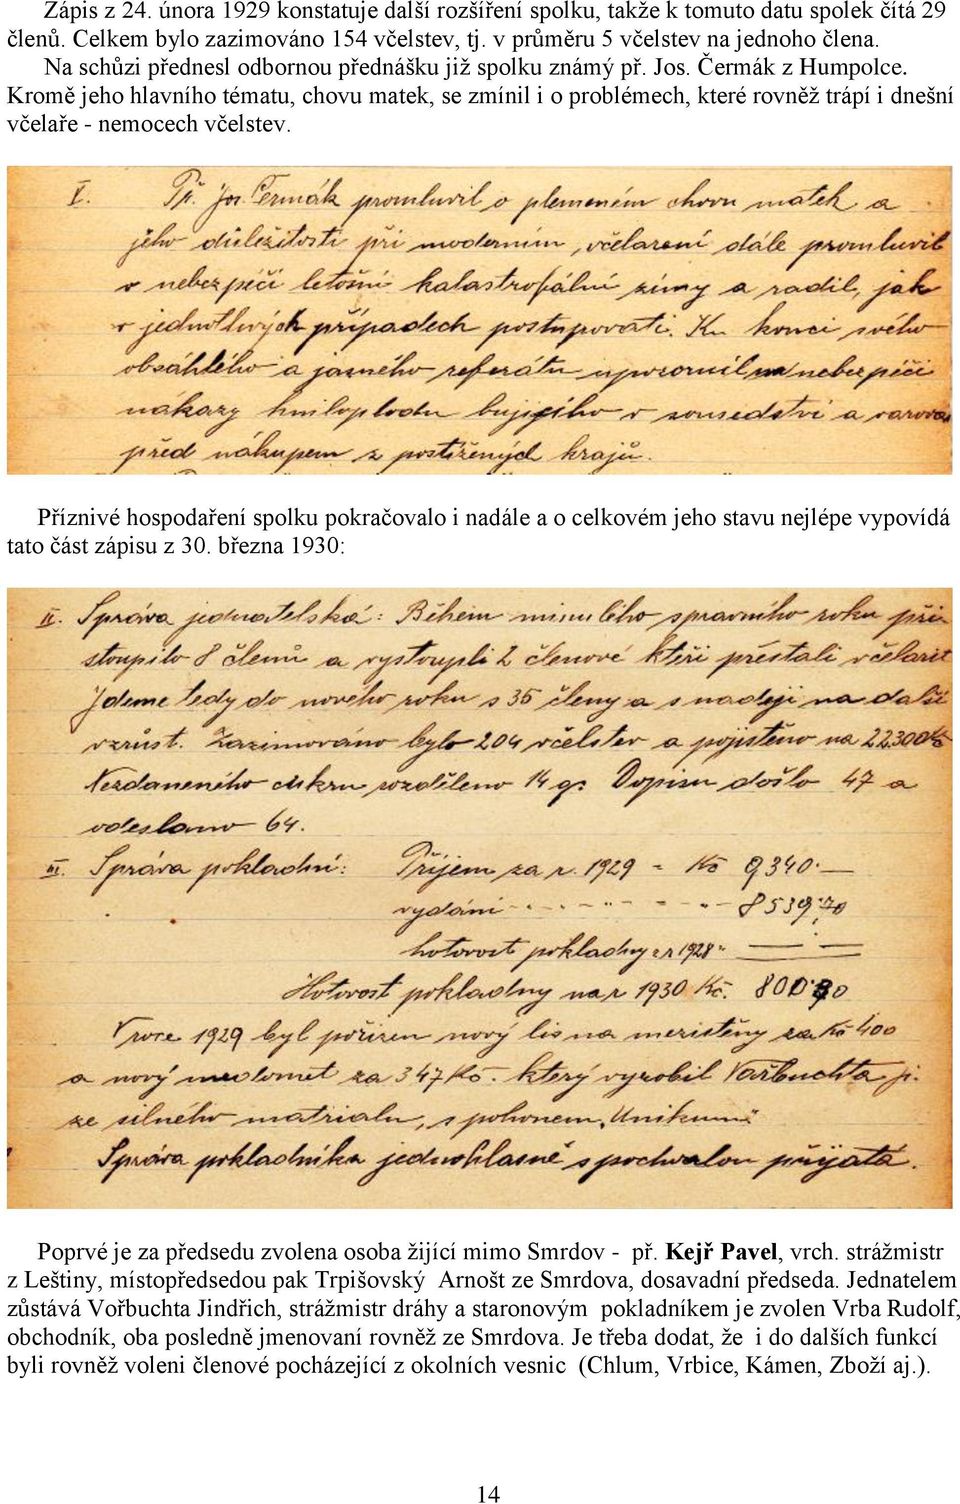 Zápis z 24. února 1929 konstatuje další rozšíření spolku, takže k tomuto datu spolek čítá 29
členů. Celkem bylo zazimováno 154 včelstev, tj. v průměru 5 včelstev na jednoho člena.
Na schůzi přednesl odbornou přednášku již spolku známý př. Jos. Čermák z Humpolce.
Kromě jeho hlavního tématu, chovu matek, se zmínil i o problémech, které rovněž trápí i dnešní
včelaře - nemocech včelstev.
V. Př. Jos. Čermák promluvil o plemeném chovu matek a
jeho důležitosti při moderním, včelaření dále promluvil
o nebezpečí letošní katastrofální zimy a radil, jak
v jednotlivých případech postupovati. Ku konci svého
obsáhlého a jasného referátu upozornil na nebezpečí
nákazy hniloplodu bujícího v sousedství a varoval
před nákupem z postižených krajů.
Příznivé hospodaření spolku pokračovalo i nadále a o celkovém jeho stavu nejlépe vypovídá
tato část zápisu z 30. března 1930:
II. Správa jednatelská: Během minulého správního roku při
stoupilo 8 členů a vystoupli 2 členové kteří přestali včelařit
Jdeme tedy do nového roku s 35 členy a s nadějí na další
vzrůst. Zazimováno bylo 204 včelstev a pojištěno na 22300 Kč
Nezdaněného cukru rozděleno 14 q. Dopisu došlo 47 a
odesláno 64.
III. Správa pokladní: Příjem za r. 1929 = Kč 9340.—
vydání - - - - - - - 8539,70
hotovost pokladny z r 1928 " — . —
Hotovost pokladny na r 1930 Kč. 800.30
V roce 1929 byl pořízen nový lis na mezistěny za Kč 400
a nový medomet za 347 Kč. který vyrobil Vařbuchta j.
ze silného matrialu, s pohonem „Unikum".
Správa pokladníka jednohlasně s pochvalou přijata.
Poprvé je za předsedu zvolena osoba žijící mimo Smrdov - př. Kejř Pavel, vrch. strážmistr
z Leštiny, místopředsedou pak Trpišovský Arnošt ze Smrdova, dosavadní předseda. Jednatelem
zůstává Vořbuchta Jindřich, strážmistr dráhy a staronovým pokladníkem je zvolen Vrba Rudolf,
obchodník, oba posledně jmenovaní rovněž ze Smrdova. Je třeba dodat, že i do dalších funkcí
byli rovněž voleni členové pocházející z okolních vesnic (Chlum, Vrbice, Kámen, Zboží aj.).
14